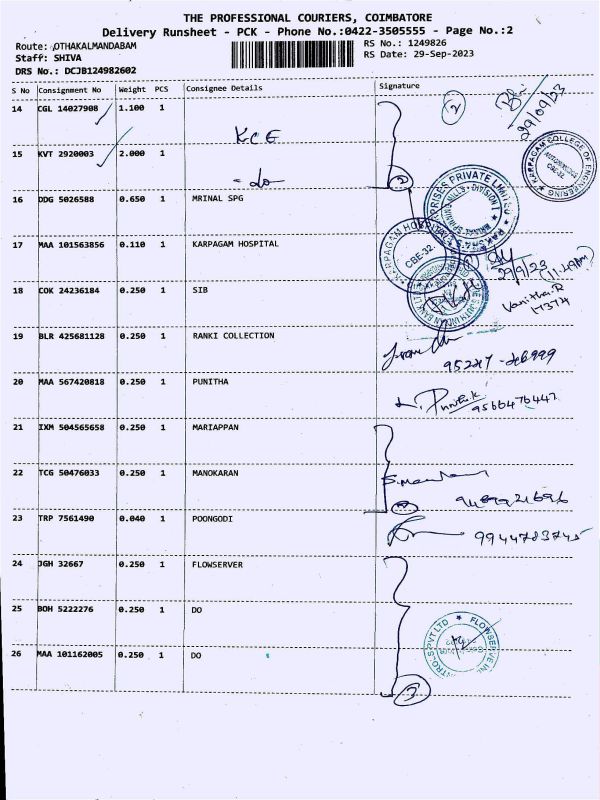 THE PROFESSIONAL COURIERS, COIMBATORE
Delivery Runsheet - PCK - Phone No.:0422-3505555 - Page No.:2
Route: OTHAKALMANDABAM
RS No.: 1249826
Staff: SHIVA
RS Date: 29-Sep-2023
DRS No.: DCJB124982602
S No Consignment No Weight PCS Consignee Details Signature
14 CGL 14027908 1.100 1 KCE
29/09/23
15 KVT 2920003 2.000 1 - do
KARPAGAM COLLEGE OF ENGINEERING
16 DDG 5026588 0.650 1 MRINAL SPG
17 MAA 101563856 0.110 1 KARPAGAM HOSPITAL
KARPAGAM HOSPITAL
CBE-32.
29/9/23
18 COK 24236184 0.250 1 SIB
Vanitha.R
17374
19 BLR 425681128 0.250 1 RANKI COLLECTION
20 MAA 567420818 0.250 1 PUNITHA
9566476447
21 IXM 504565658 0.250 1 MARIAPPAN
22 TCG 50476033 0.250 1 MANOKARAN
23 TRP 7561490 0.040 1 POONGODI
9944783745
24 JGH 32667 0.250 1 FLOWSERVER
25 BOH 5222276 0.250 1 DO
26 MAA 101162005 0.250 1 DO